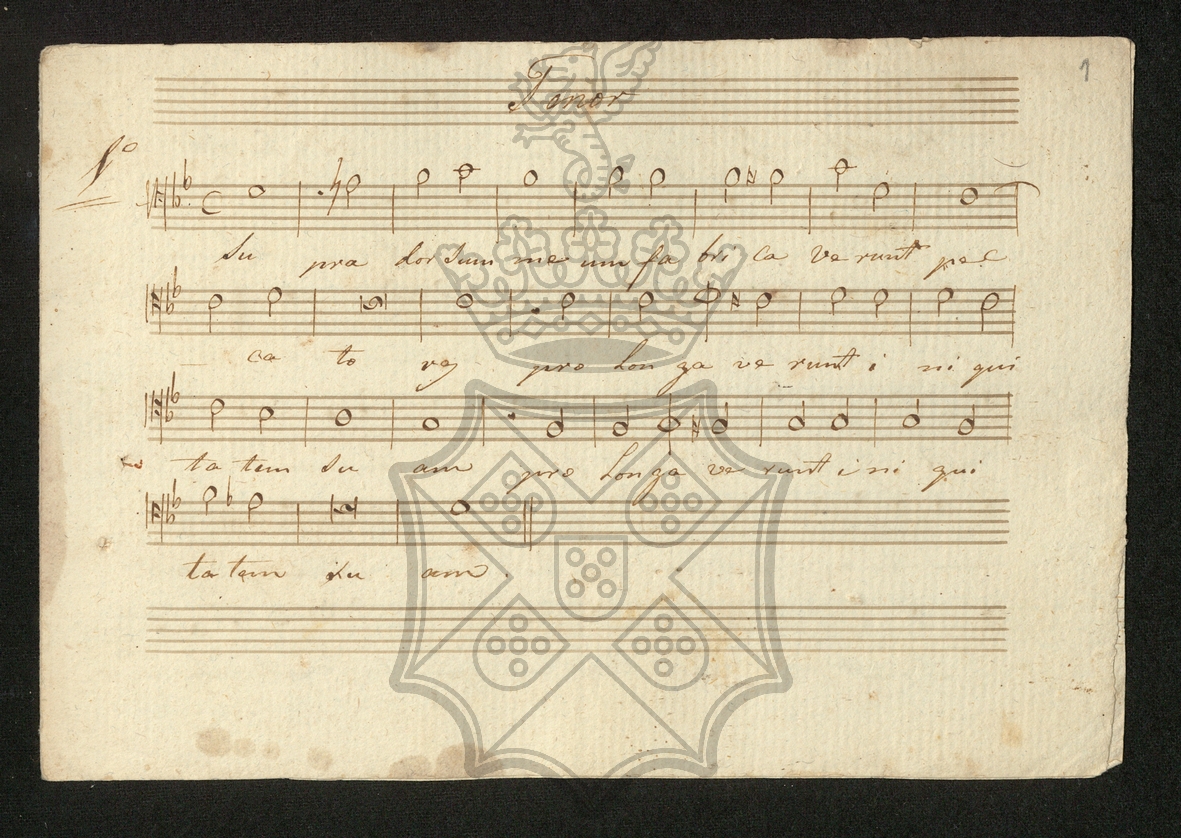 Tenor
1
1º
Su pra dor sum me um fa bri ca ve runt pec
ca to res pro lon ga ve runt i ni qui
ta tem su am pro lon ga ve runt i ni qui
ta tem su am